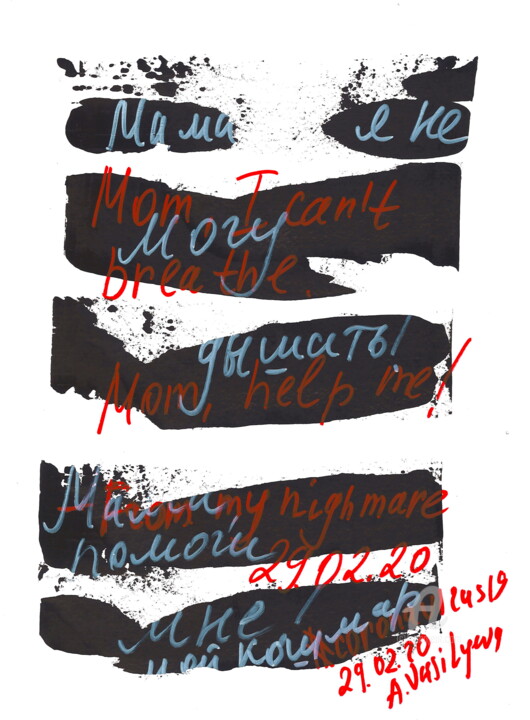 Мама я не
Mom, I can't
могу
breathe.
дышать!
Mom, help me!
Мамочка,
From my nighmare
помоги
29.02.20
мне!
мой кошмар
29.02.20
A.Vasilyeva